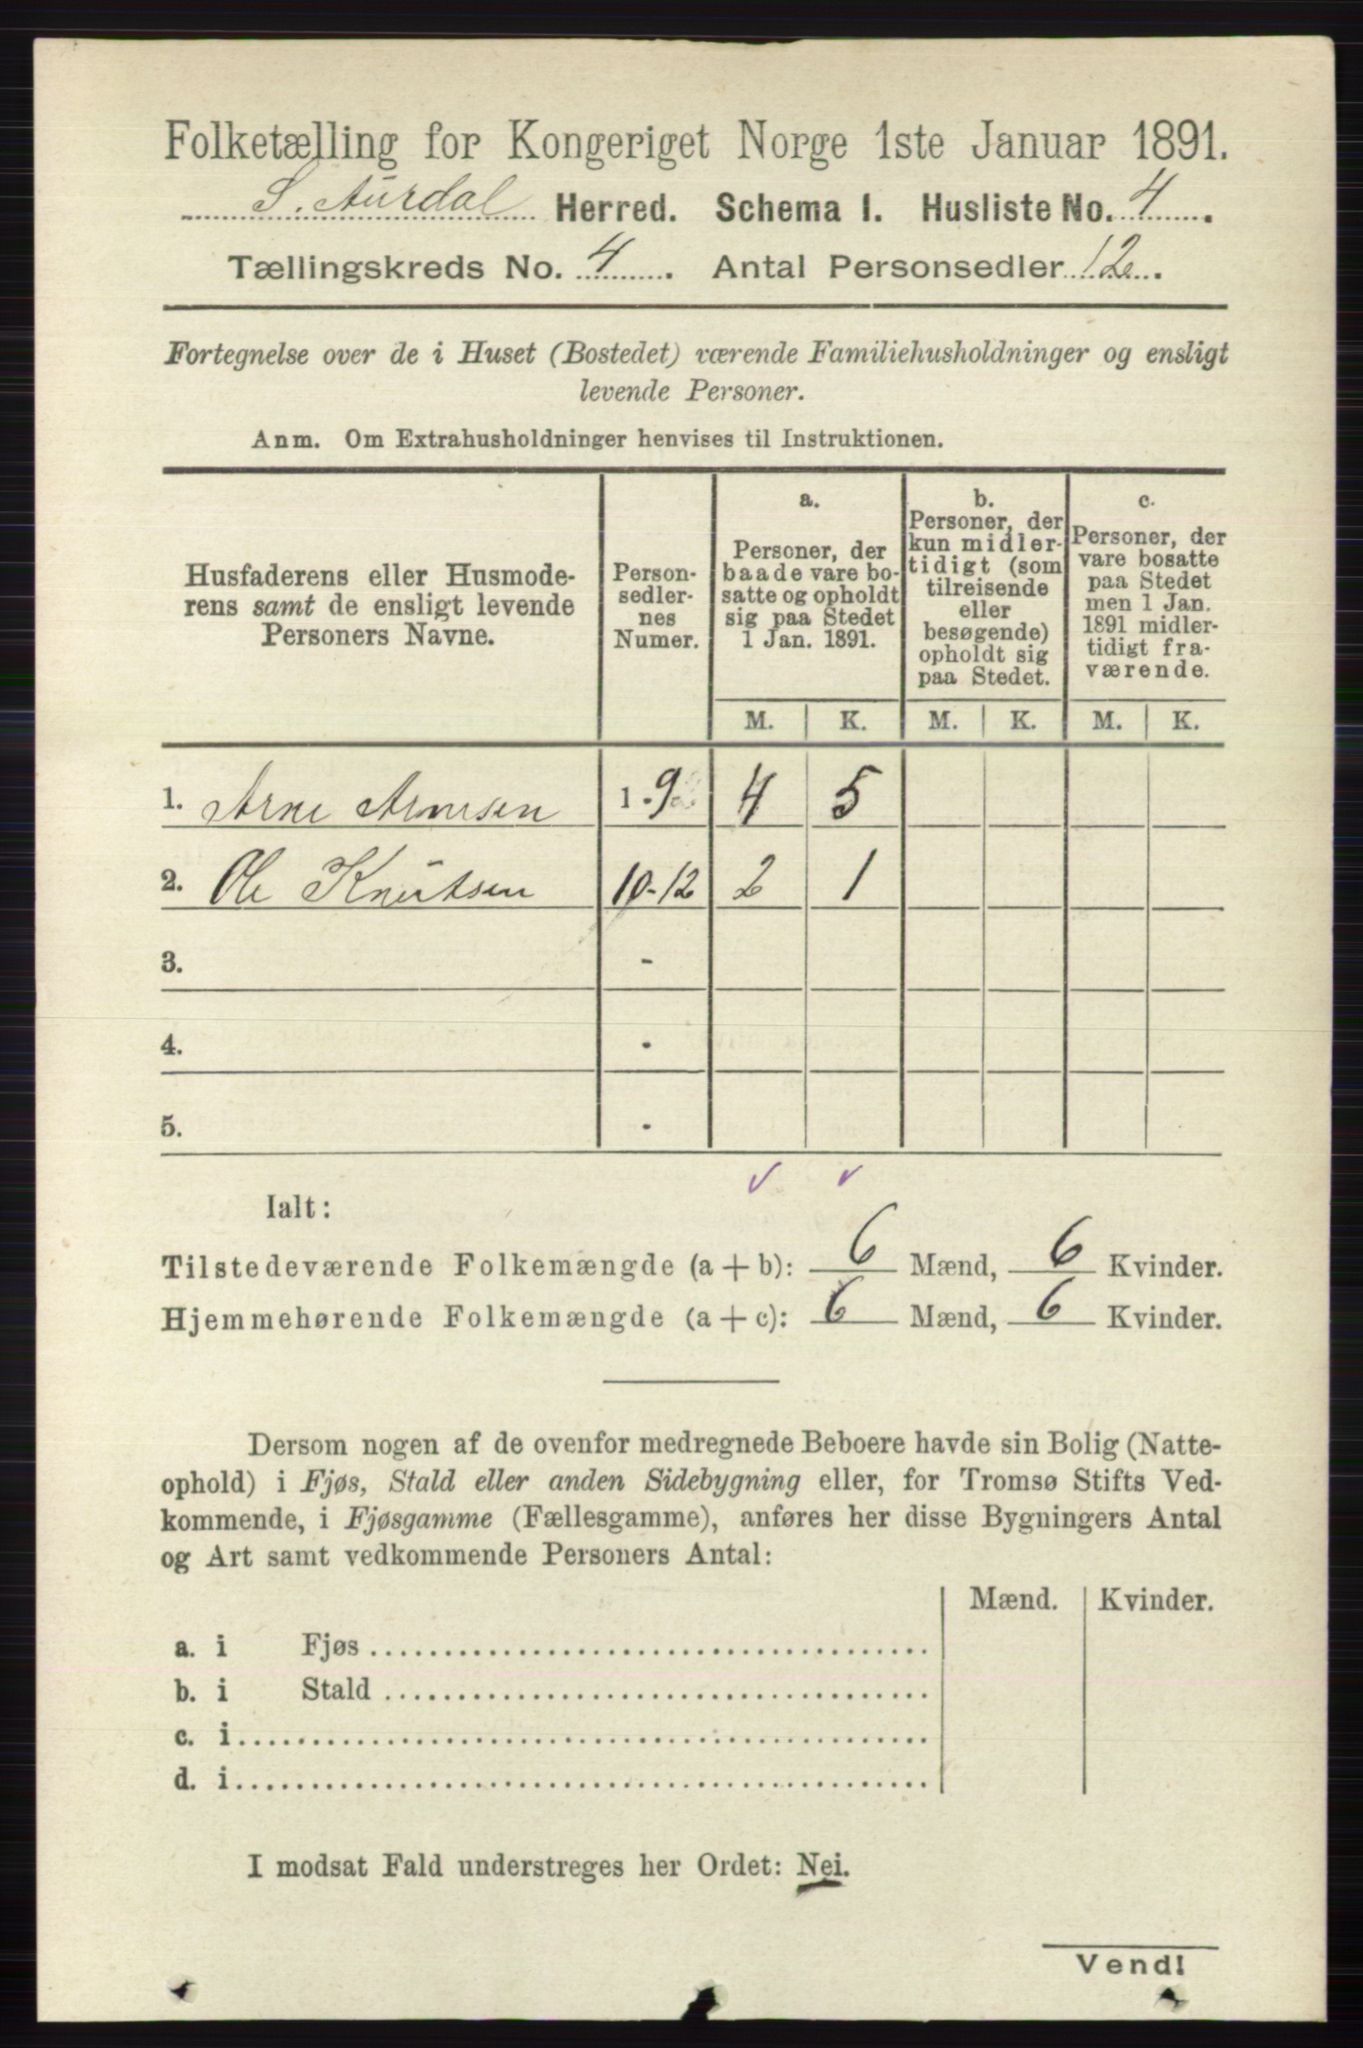 Folketælling for Kongeriget Norge 1ste Januar 1891.
S. Aurdal Herred. Schema I. Husliste No. 4.
Tællingskreds No. 4. Antal Personsedler 12.
Fortegnelse over de i Huset (Bostedet) værende Familiehusholdninger og ensligt
levende Personer.
Anm. Om Extrahusholdninger henvises til Instruktionen.
Husfaderens eller Husmode-
rens samt de ensligt levende
Personers Navne.
Person-
sedler-
nes
Numer.
a.
Personer, der
baade vare bo-
satte og opholdt
sig paa Stedet
1 Jan. 1891.
b.
Personer, der
kun midler-
tidigt (som
tilreisende
eller
besøgende)
opholdt sig
paa Stedet.
c.
Personer, der
vare bosatte
paa Stedet
men 1 Jan.
1891 midler-
tidigt fra-
værende.
M. K. M. K. M. K.
1. Arne Arnesen 1-9 4 5
2. Ole Knutsen 10-12 2 1
3. -
4. -
5. -
Ialt:
Tilstedeværende Folkemængde (a + b): 6 Mænd, 6 Kvinder.
Hjemmehørende Folkemængde (a + c): 6 Mænd, 6 Kvinder.
Dersom nogen af de ovenfor medregnede Beboere havde sin Bolig (Natte-
ophold) i Fjøs, Stald eller anden Sidebygning eller, for Tromsø Stifts Ved-
kommende, i Fjøsgamme (Fællesgamme), anføres her disse Bygningers Antal
og Art samt vedkommende Personers Antal:
Mænd. Kvinder.
a. i Fjøs
b. i Stald
c. i
d. i
I modsat Fald understreges her Ordet: Nei.
Vend!